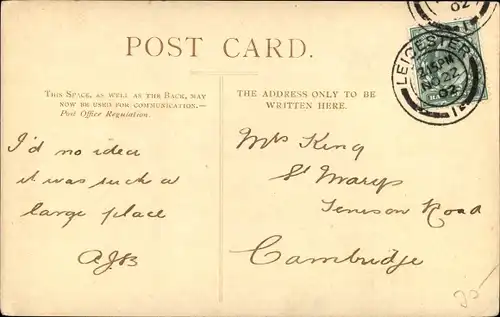 02
LEICESTER
2.15 PM
NO 22
02
POST CARD.
THIS SPACE, AS WELL AS THE BACK, MAY
NOW BE USED FOR COMMUNICATION.—
Post Office Regulation.
THE ADDRESS ONLY TO BE
WRITTEN HERE.
I'd no idea
it was such a
large place
AJB
Mrs King
St Marys
Tenison Road
Cambridge